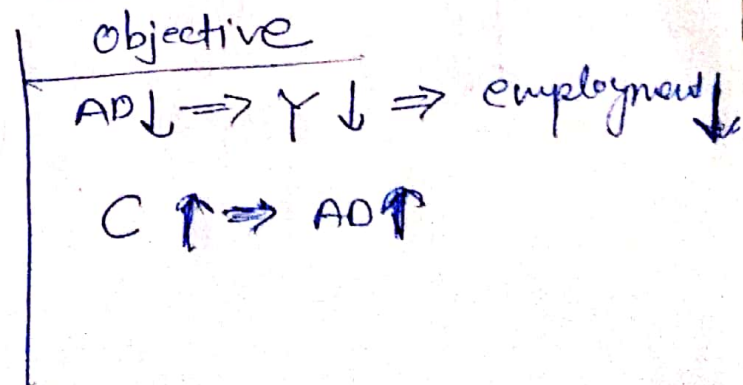 objective
AD↓ ⇒ Y ↓ ⇒ employment↓
C ↑ ⇒ AD↑